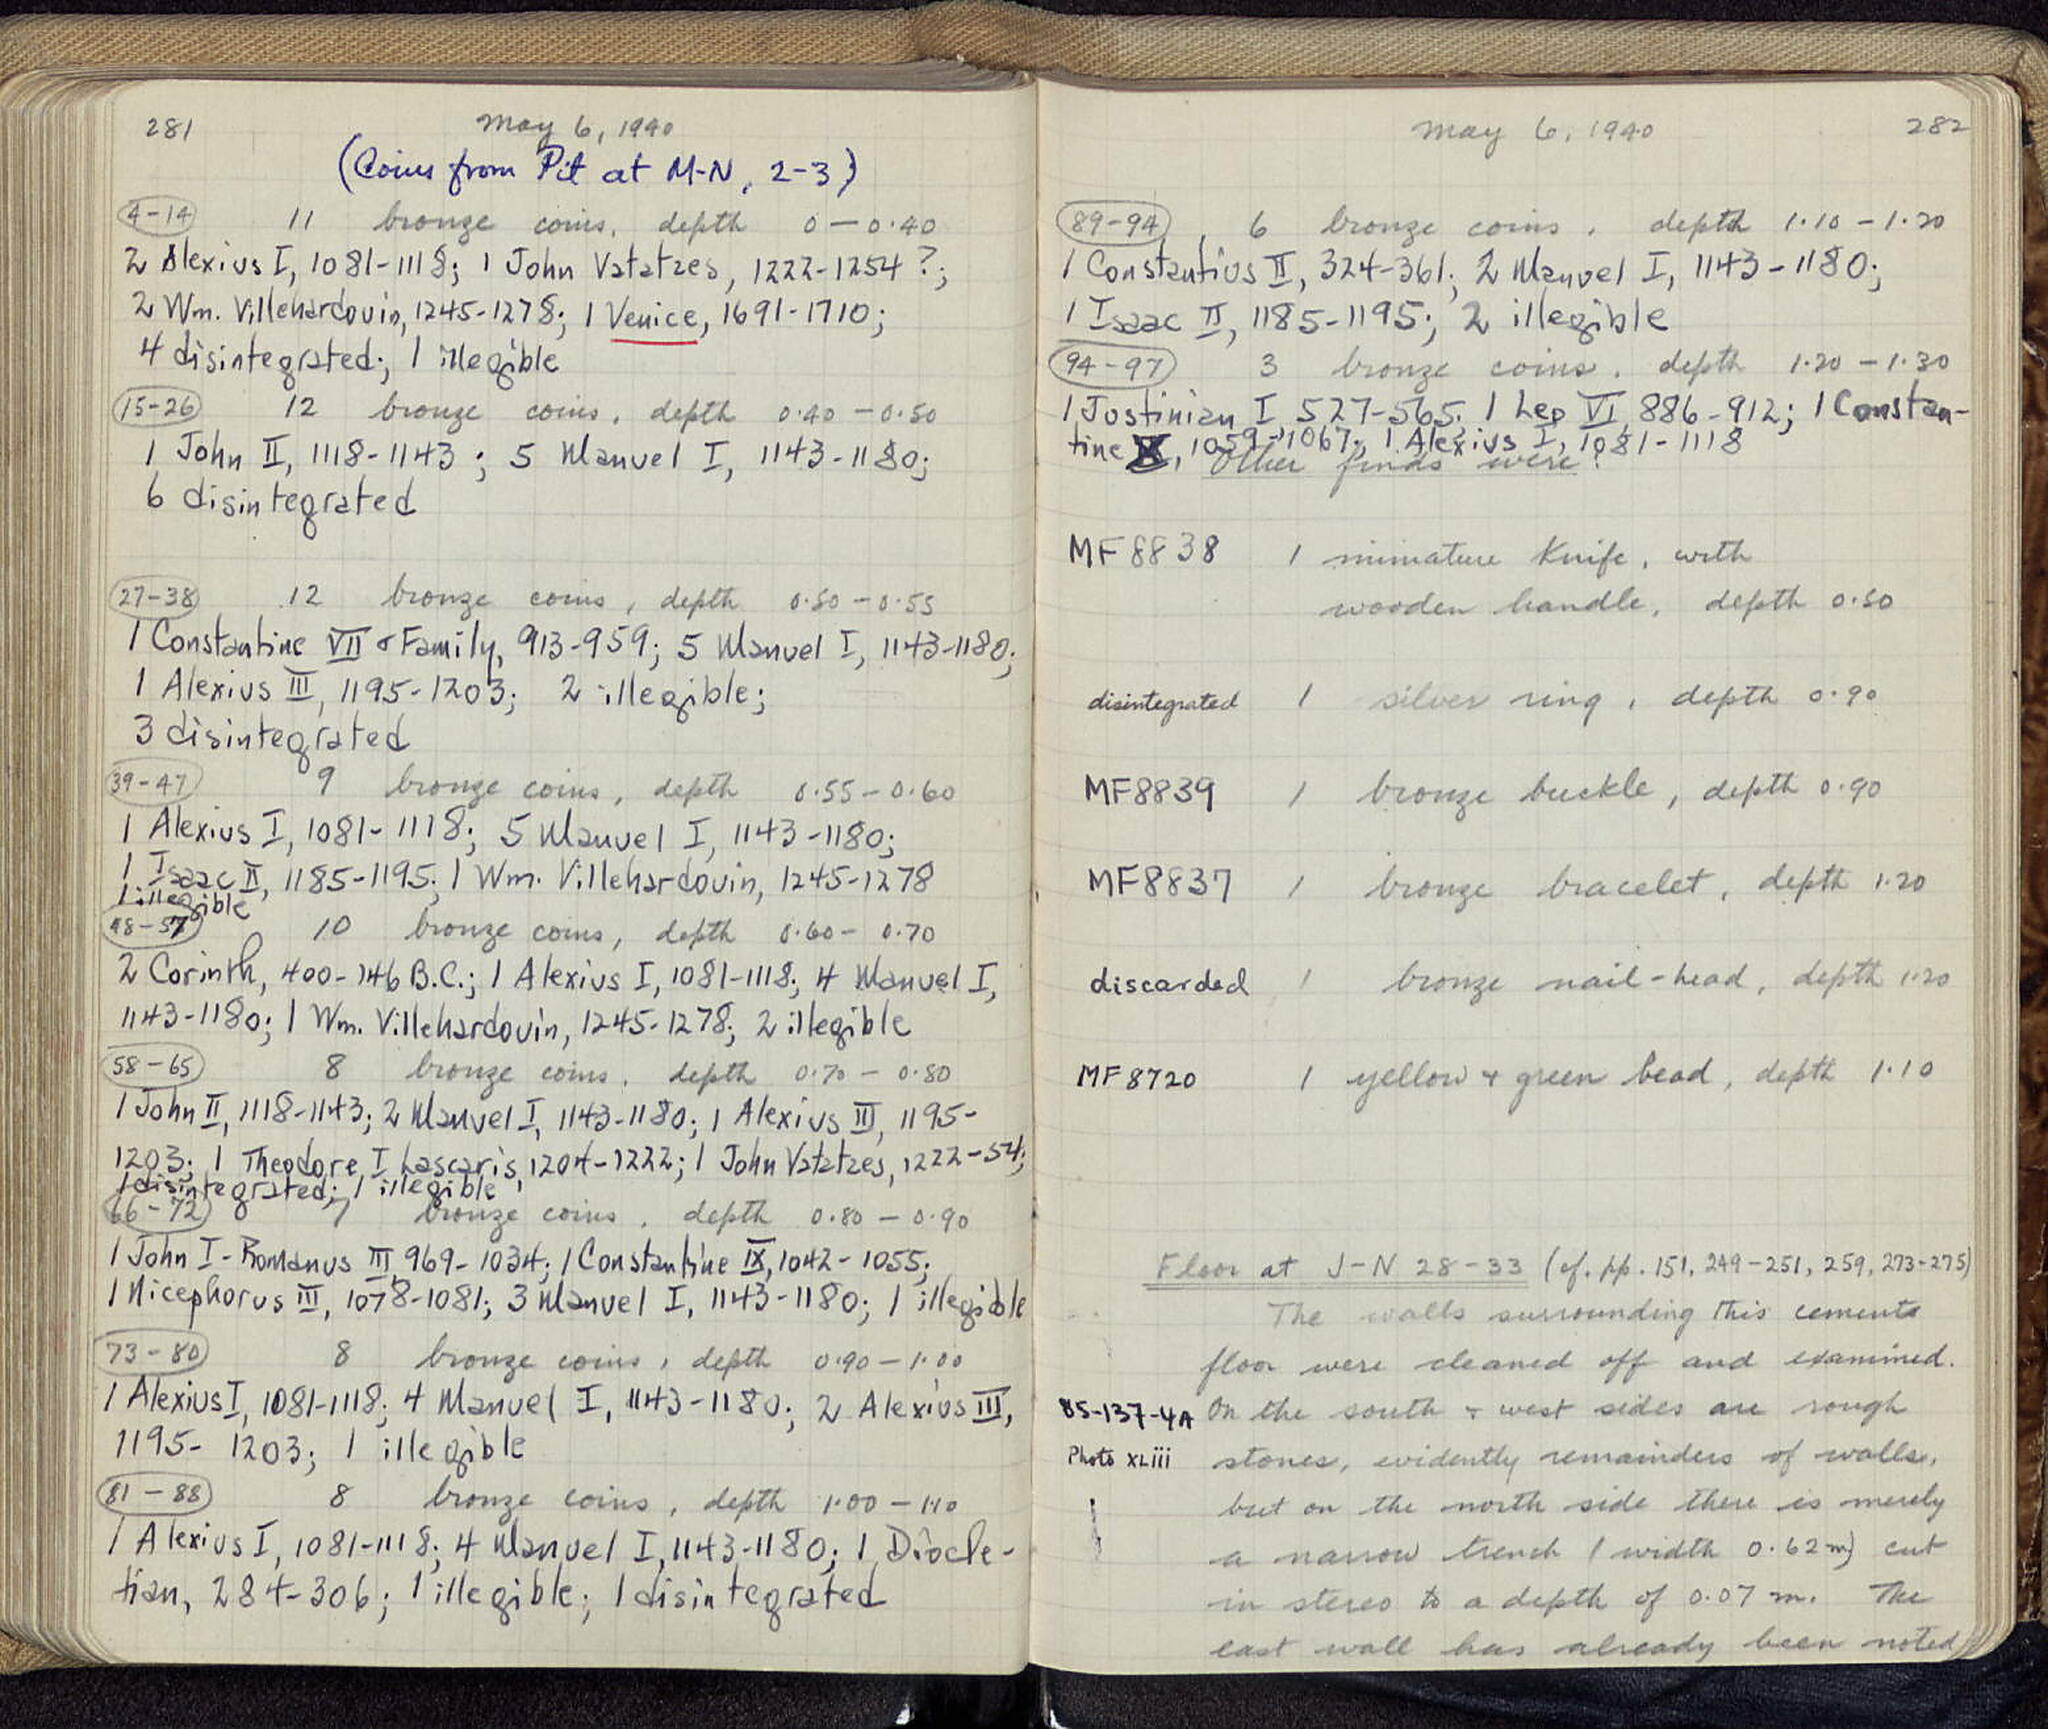 281
May 6, 1940
(Coins from Pit at M-N, 2-3)
4-14 11 bronze coins, depth 0 — 0.40
2 Alexius I, 1081-1118; 1 John Vatatzes, 1222-1254?;
2 Wm. Villehardouin, 1245-1278; 1 Venice, 1691-1710;
4 disintegrated; 1 illegible
15-26 12 bronze coins, depth 0.40 — 0.50
1 John II, 1118-1143; 5 Manuel I, 1143-1180;
6 disintegrated
27-38 12 bronze coins, depth 0.50 — 0.55
1 Constantine VII & Family, 913-959; 5 Manuel I, 1143-1180;
1 Alexius III, 1195-1203; 2 illegible;
3 disintegrated
39-47 9 bronze coins, depth 0.55 — 0.60
1 Alexius I, 1081-1118; 5 Manuel I, 1143-1180;
1 Isaac II, 1185-1195; 1 Wm. Villehardouin, 1245-1278
1 illegible
48-57 10 bronze coins, depth 0.60 — 0.70
2 Corinth, 400-146 B.C.; 1 Alexius I, 1081-1118; 4 Manuel I,
1143-1180; 1 Wm. Villehardouin, 1245-1278; 2 illegible
58-65 8 bronze coins, depth 0.70 — 0.80
1 John II, 1118-1143; 2 Manuel I, 1143-1180; 1 Alexius III, 1195-
1203; 1 Theodore I Lascaris, 1204-1222; 1 John Vatatzes, 1222-54;
1 disintegrated; 1 illegible
66-72 7 bronze coins, depth 0.80 — 0.90
1 John I-Romanus III, 969-1034; 1 Constantine IX, 1042-1055;
1 Nicephorus III, 1078-1081; 3 Manuel I, 1143-1180; 1 illegible
73-80 8 bronze coins, depth 0.90 — 1.00
1 Alexius I, 1081-1118; 4 Manuel I, 1143-1180; 2 Alexius III,
1195-1203; 1 illegible
81-88 8 bronze coins, depth 1.00 — 1.10
1 Alexius I, 1081-1118; 4 Manuel I, 1143-1180; 1 Diocle-
tian, 284-306; 1 illegible; 1 disintegrated
May 6, 1940
282
89-94, 6 bronze coins, depth 1.10 — 1.20
1 Constantius II, 324-361; 2 Manuel I, 1143-1180;
1 Isaac II, 1185-1195; 2 illegible
94-97 3 bronze coins, depth 1.20 — 1.30
1 Justinian I 527-565; 1 Leo VI, 886-912; 1 Constan-
tine X, 1059-1067; 1 Alexius I, 1081-1118
Other finds were:
MF8838 1 miniature knife, with
wooden handle, depth 0.50
disintegrated 1 silver ring, depth 0.90
MF8839 1 bronze buckle, depth 0.90
MF8837 1 bronze bracelet, depth 1.20
discarded 1 bronze nail-head, depth 1.20
MF8720 1 yellow & green bead, depth 1.10
Floor at J-N 28-33 (cf. pp. 151, 249-251, 259, 273-275)
The walls surrounding this cement
floor were cleaned off and examined.
85-137-4A On the south & west sides are rough
Photo XLiii stones, evidently remainders of walls,
but on the north side there is merely
a narrow trench (width 0.62 m) cut
in stereo to a depth of 0.07 m. The
east wall has already been noted